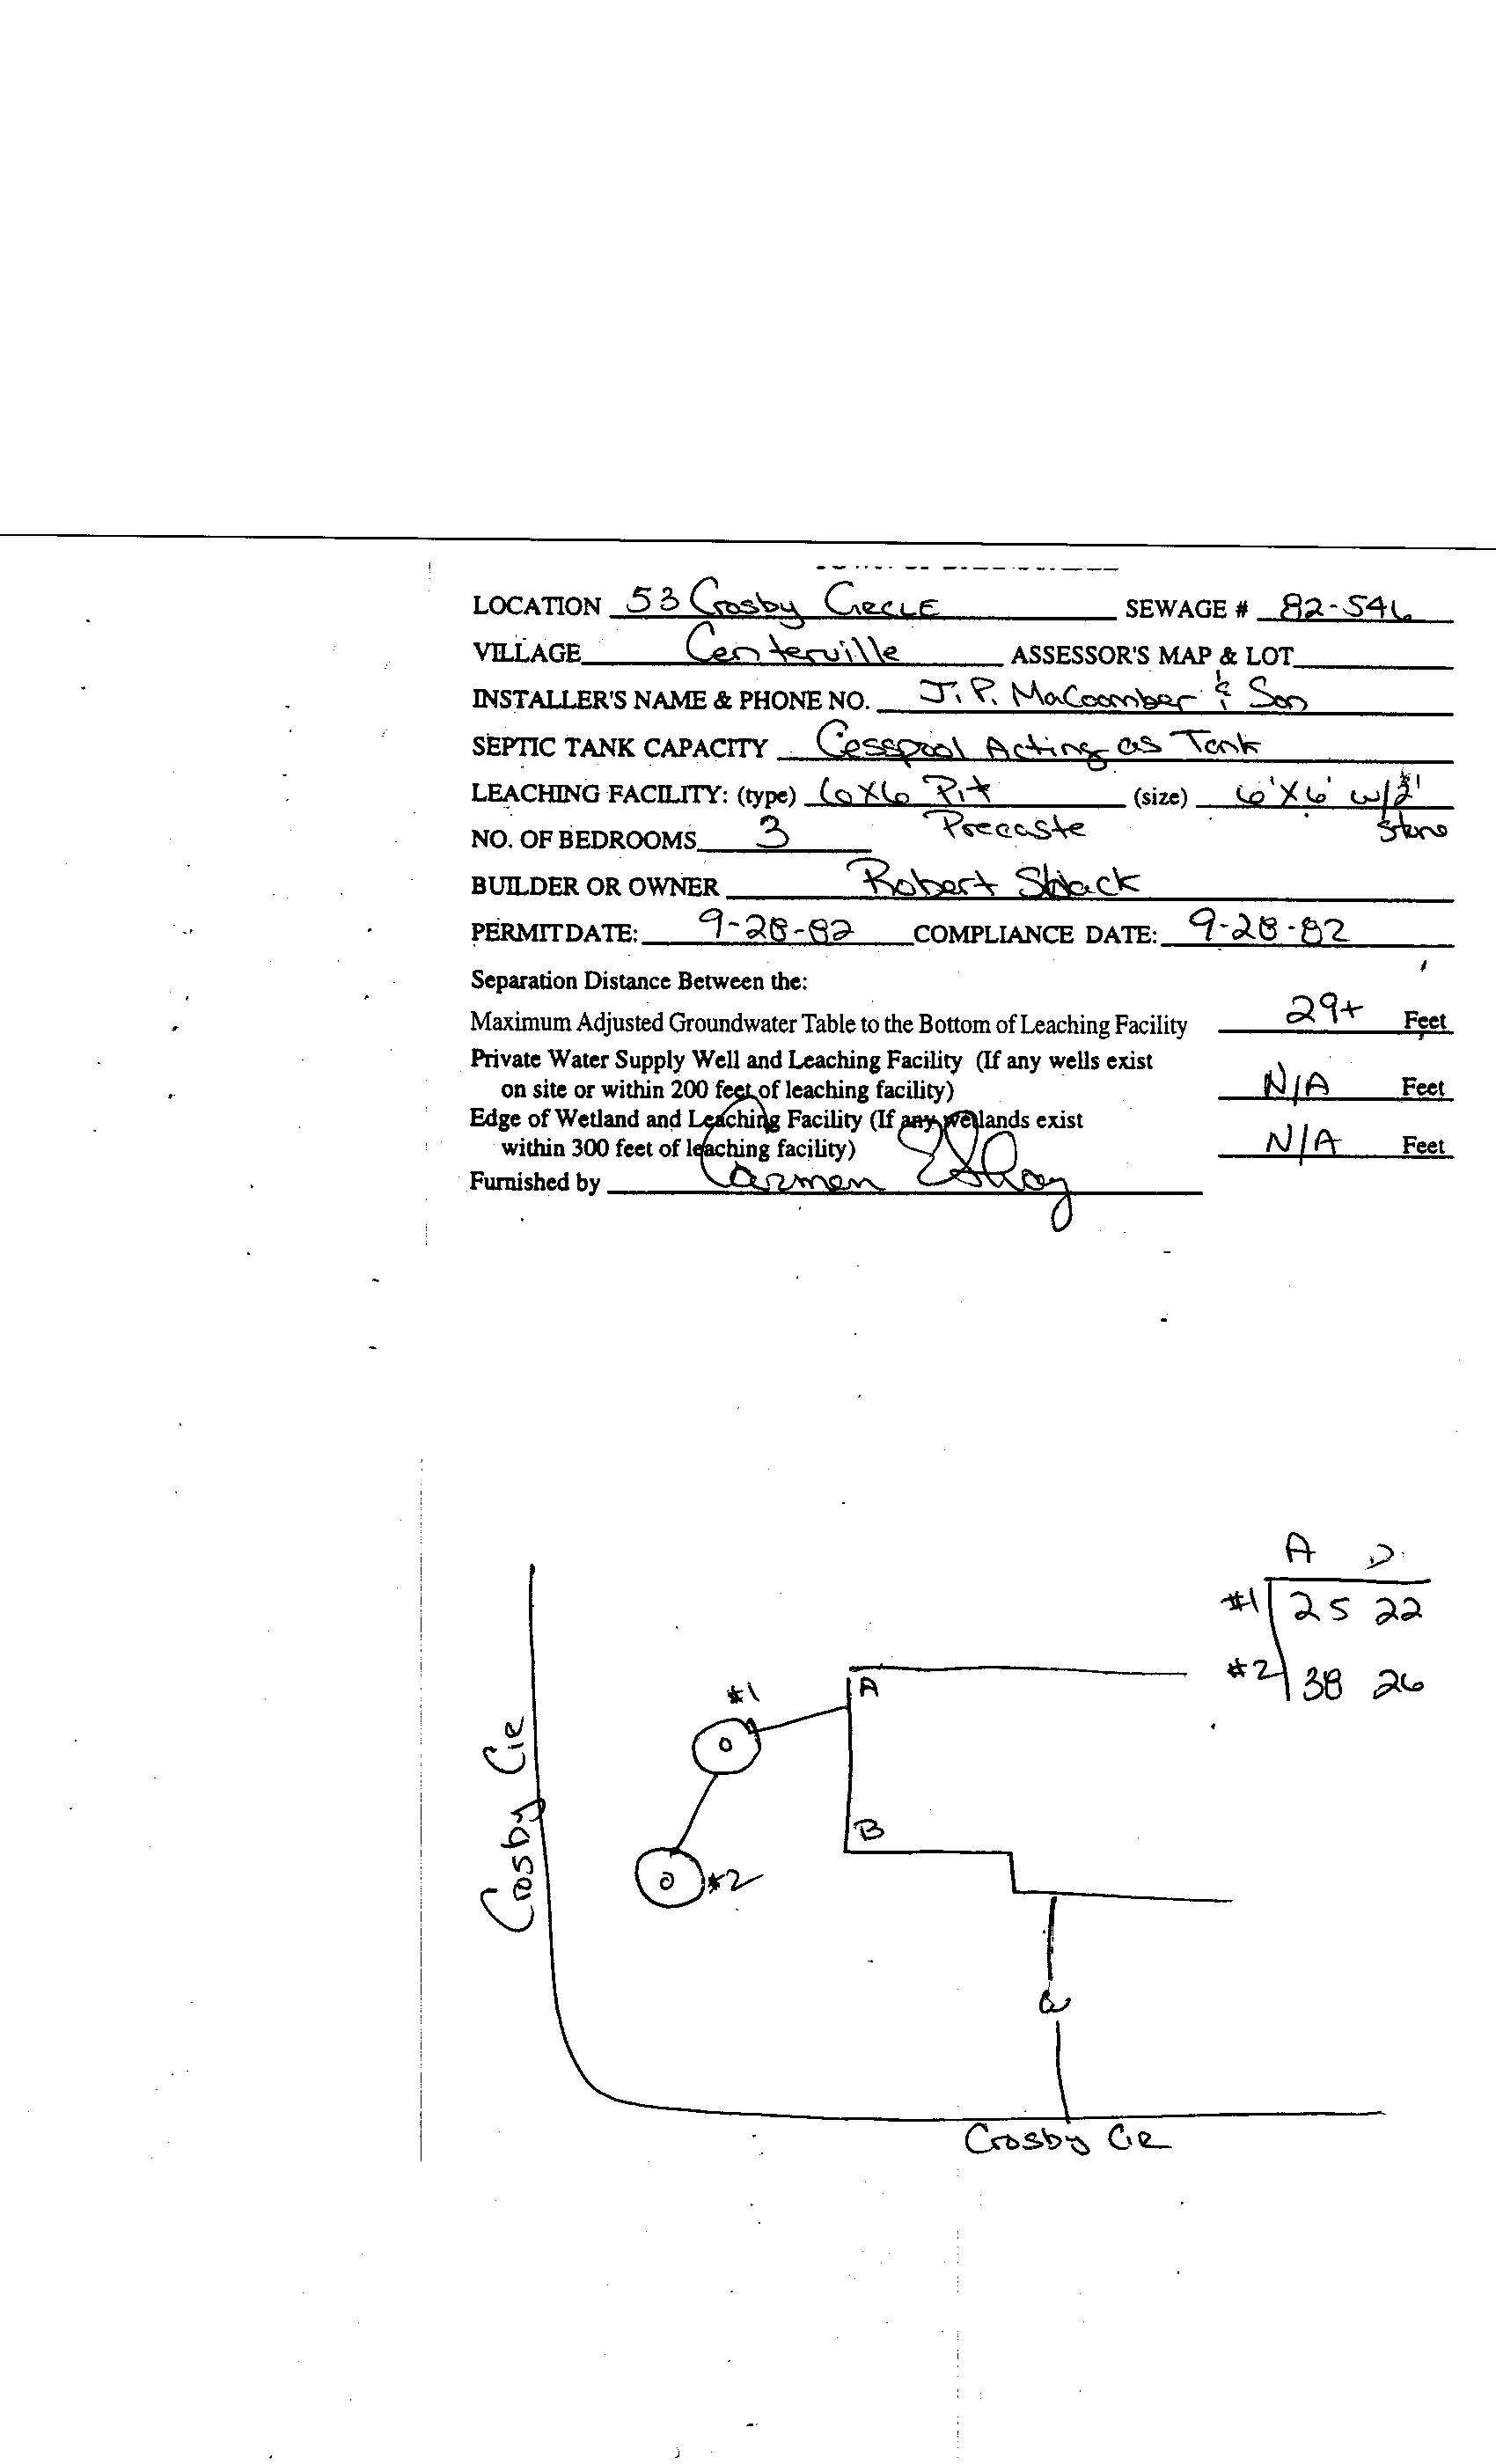 LOCATION 53 Crosby CIRCLE SEWAGE # 82-546
VILLAGE Centerville ASSESSOR'S MAP & LOT
INSTALLER'S NAME & PHONE NO. J.P. MaCoomber & Son
SEPTIC TANK CAPACITY Cesspool Acting as Tank
LEACHING FACILITY: (type) 6x6 Pit (size) 6'X6' w/2'
Precaste stone
NO. OF BEDROOMS 3
BUILDER OR OWNER Robert
PERMIT DATE: 9-28-82 COMPLIANCE DATE: 9-28-82
Separation Distance Between the:
Maximum Adjusted Groundwater Table to the Bottom of Leaching Facility 29+ Feet
Private Water Supply Well and Leaching Facility (If any wells exist
on site or within 200 feet of leaching facility) N/A Feet
Edge of Wetland and Leaching Facility (If any wetlands exist
within 300 feet of leaching facility) N/A Feet
Furnished by Carmen E Shay
A
#1 25 22
#2 38 26
#1
A
B
#2
Crosby Cir
Crosby Cir